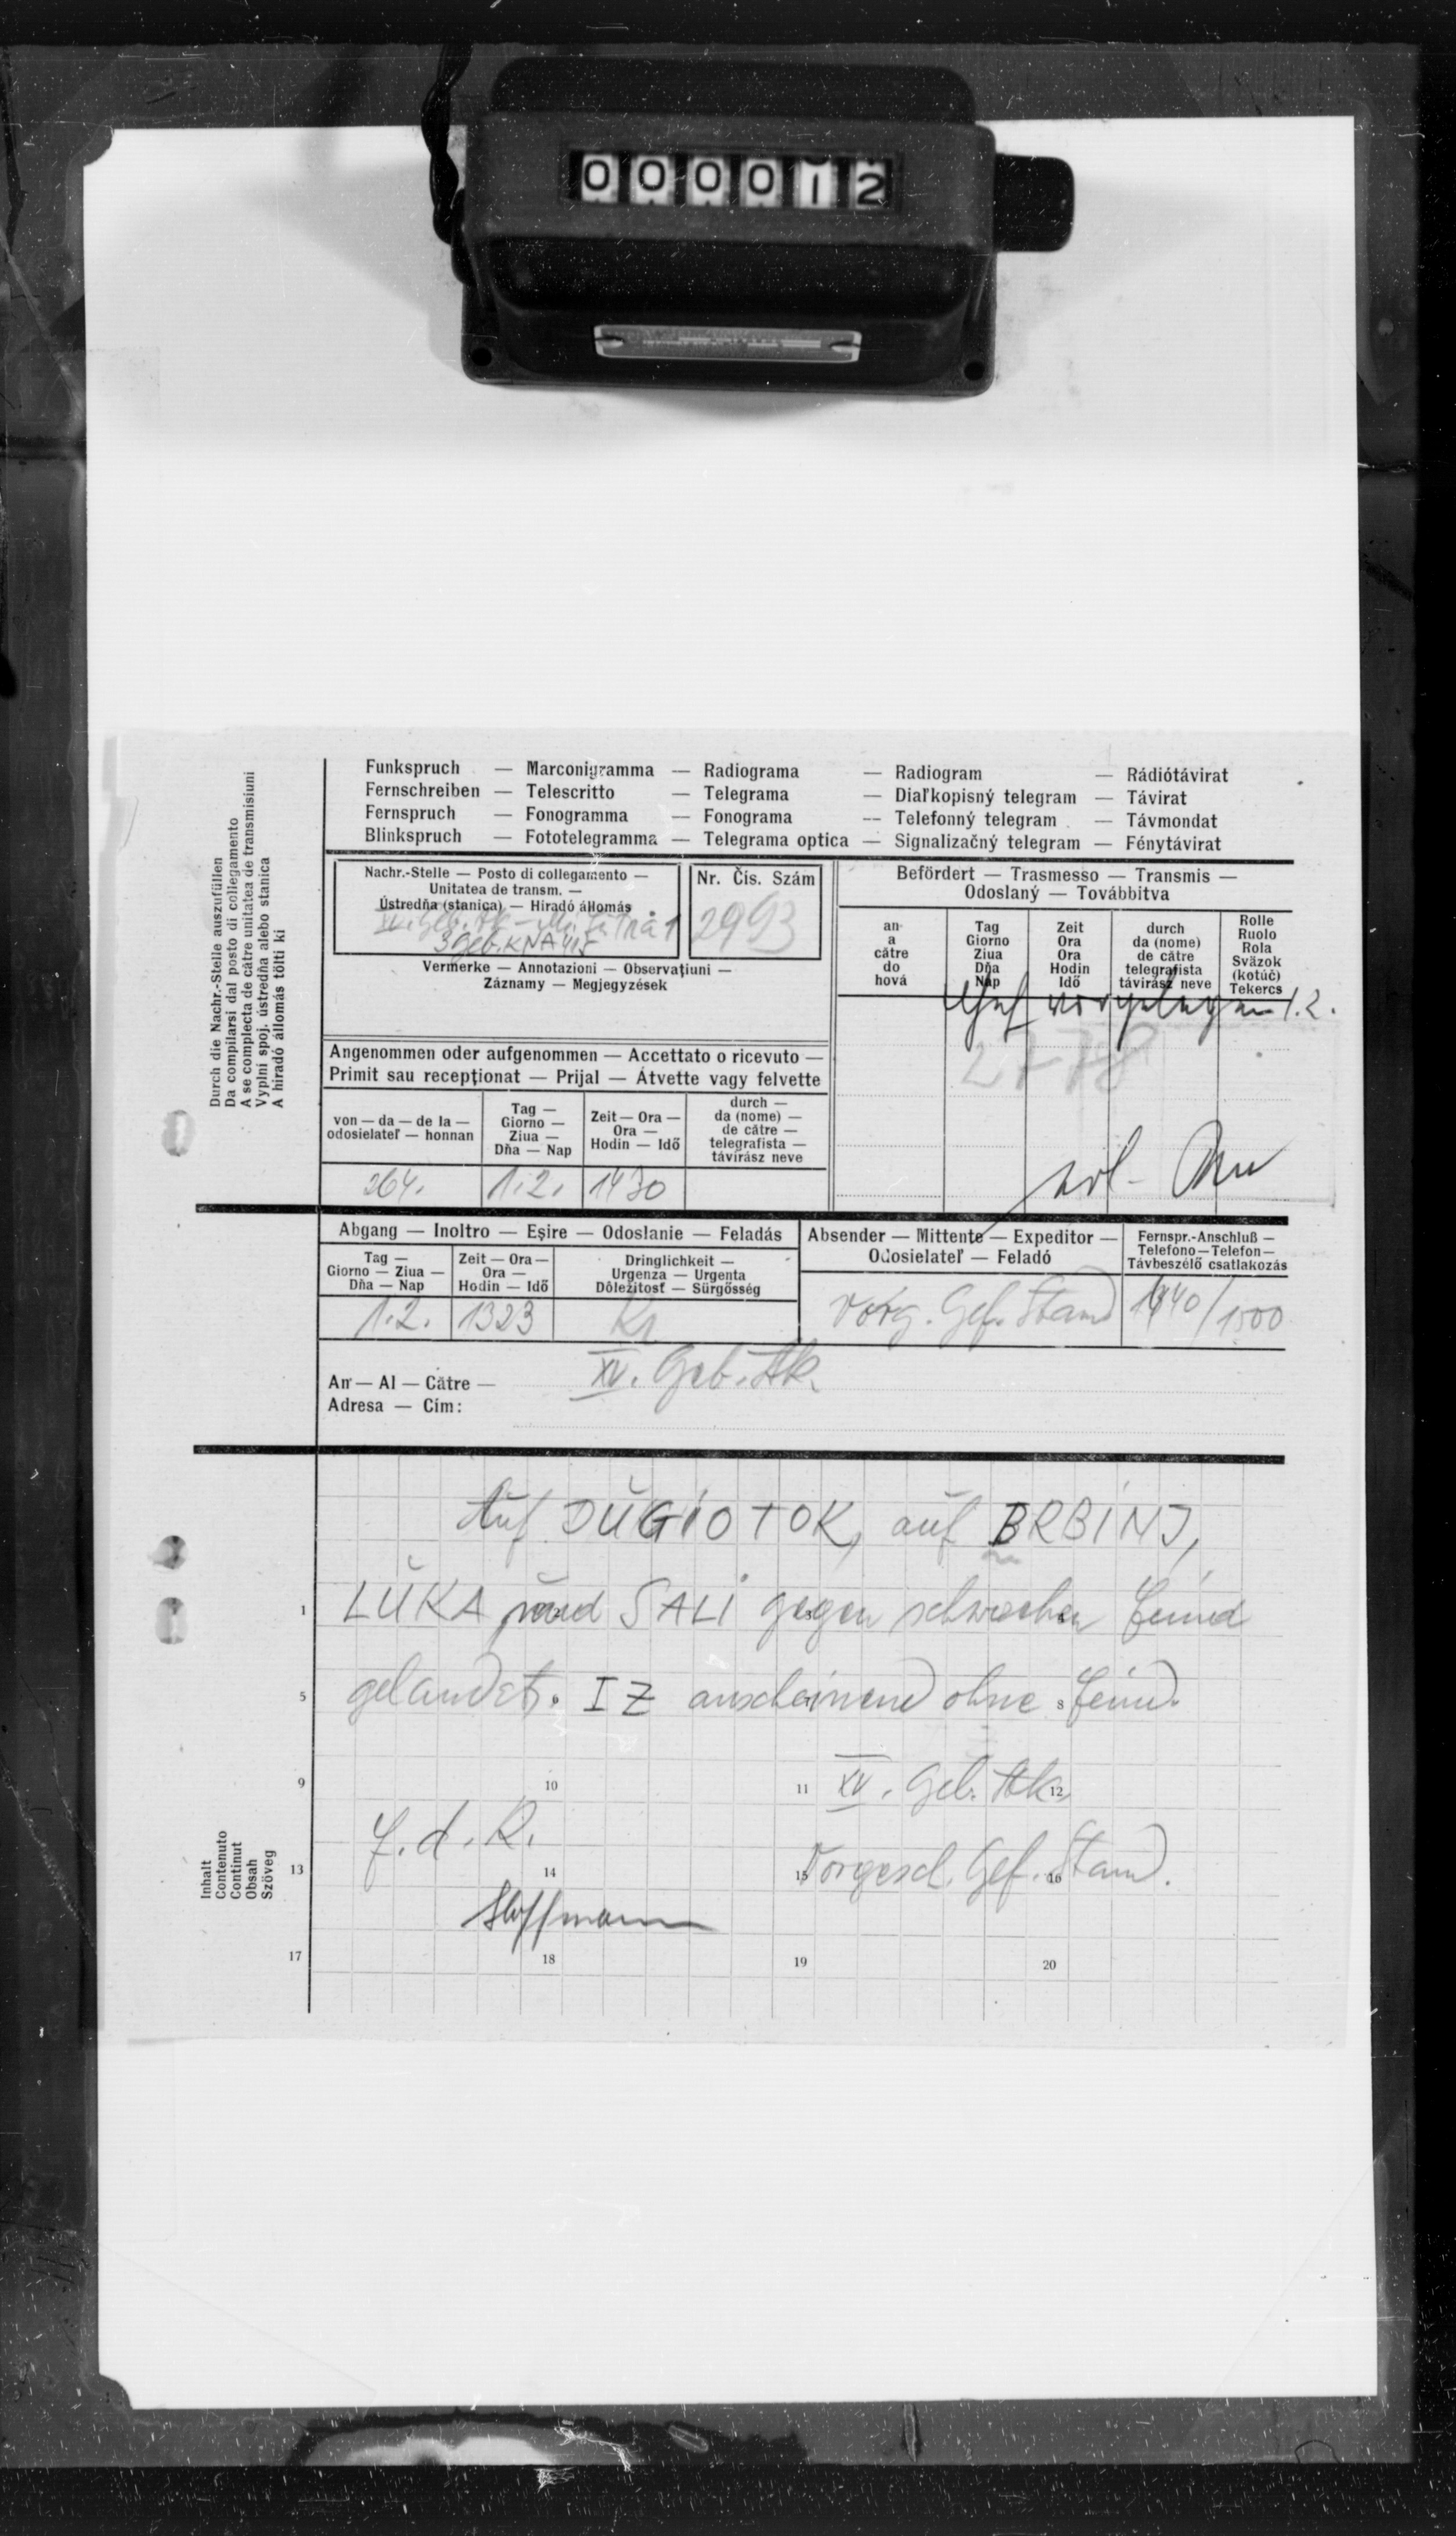 000012
Funkspruch — Marconigramma — Radiograma — Radiogram — Rádiótávirat
Fernschreiben — Telescritto — Telegrama — Diaľkopisný telegram — Távirat
Fernspruch — Fonogramma — Fonograma — Telefonný telegram — Távmondat
Blinkspruch — Fototelegramma — Telegrama optica — Signalizačný telegram — Fénytávirat
Durch die Nachr.-Stelle auszufüllen
Da compilarsi dal posto di collegamento
A se complecta de către unitatea de transmisiuni
Vyplní spoj. ústredňa alebo stanica
A hiradó állomás tölti ki
Nachr.-Stelle — Posto di collegamento —
Unitatea de transm. —
Ústredňa (stanica) — Hiradó állomás
3 Geb. KNA 415
Nr. Čis. Szám
2993
Vermerke — Annotazioni — Observațiuni —
Záznamy — Megjegyzések
Befördert — Trasmesso — Transmis —
Odoslaný — Továbbitva
an
a
către
do
hová
Tag
Giorno
Ziua
Dňa
Nap
Zeit
Ora
Ora
Hodin
Idő
durch
da (nome)
de către
telegrafista
távirász neve
Rolle
Ruolo
Rola
Sväzok
(kotúč)
Tekercs
Chef vorgelegen 1.2.
Angenommen oder aufgenommen — Accettato o ricevuto —
Primit sau recepționat — Prijal — Átvette vagy felvette
von — da — de la —
odosielateľ — honnan
Tag —
Giorno —
Ziua —
Dňa — Nap
Zeit — Ora —
Ora —
Hodin — Idő
durch —
da (nome) —
de către —
telegrafista —
távirász neve
264. 1.2. 1430
Abgang — Inoltro — Eşire — Odoslanie — Feladás
Absender — Mittente — Expeditor —
Odosielateľ — Feladó
Fernspr.-Anschluß —
Telefono — Telefon —
Távbeszélő csatlakozás
Tag —
Giorno — Ziua —
Dňa — Nap
Zeit — Ora —
Ora —
Hodin — Idő
Dringlichkeit —
Urgenza — Urgenta
Dôležitosť — Sürgősség
1.2. 1323 Kr vorg. Gef. Stand 1440/1500
An — Al — Către —
Adresa — Cím:
XV. Geb. Ak.
Auf DUGIOTOK, auf BRBINJ,
1 LUKA und SALI gegen schwachen Feind
5 gelandet. IZ anscheinend ohne 8 Feind.
9 10 11 XV. Geb. Ak. 12
f.d.R.
13 14 15 Vorgesch. Gef. Stand. 16
Hoffmann
17 18 19 20
Inhalt
Contenuto
Continut
Obsah
Szöveg